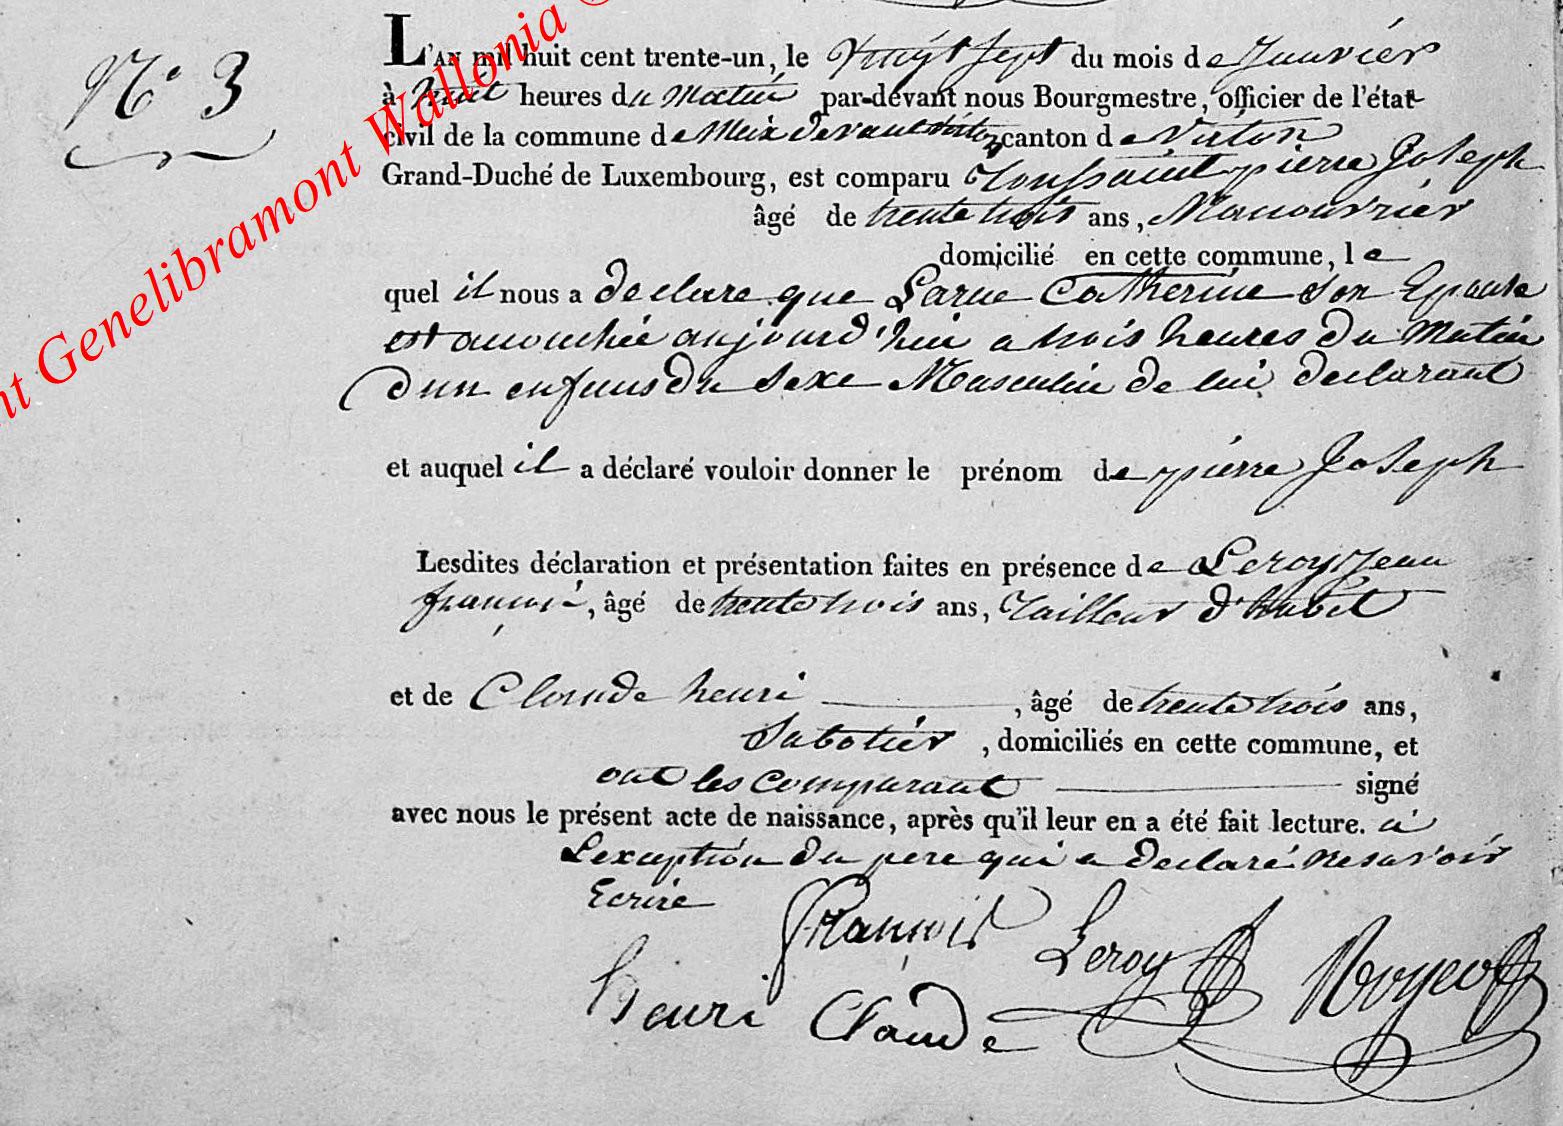 N.° 3
L'AN mil huit cent trente-un, le Vingt Sept du mois de Janviér
à huit heures du Matin par-devant nous Bourgmestre, officier de l'état
civil de la commune de Meix devant virton canton de Virton
Grand-Duché de Luxembourg, est comparu Toussaint pierre Joseph
âgé de trente trois ans, Manouvriér
domicilié en cette commune, le
quel il nous a declare que Larue Catherine son Epouse
est accouchée aujourd'hui a trois heures du Matin
d'un enfans du sexe Masculin de lui declarant
et auquel il a déclaré vouloir donner le prénom de piérre Joseph
Lesdites déclaration et présentation faites en présence de Leroy Jean
françois, âgé de trente trois ans, Tailleur d'habit
et de Claude henri, âgé de trente trois ans,
Sabotiér, domiciliés en cette commune, et
ont les comparant signé
avec nous le présent acte de naissance, après qu'il leur en a été fait lecture. a
Lexception du pere qui a declaré ne savoir
Ecrire
françois Leroy
henri Claude
Genelibramont Wallonia ©